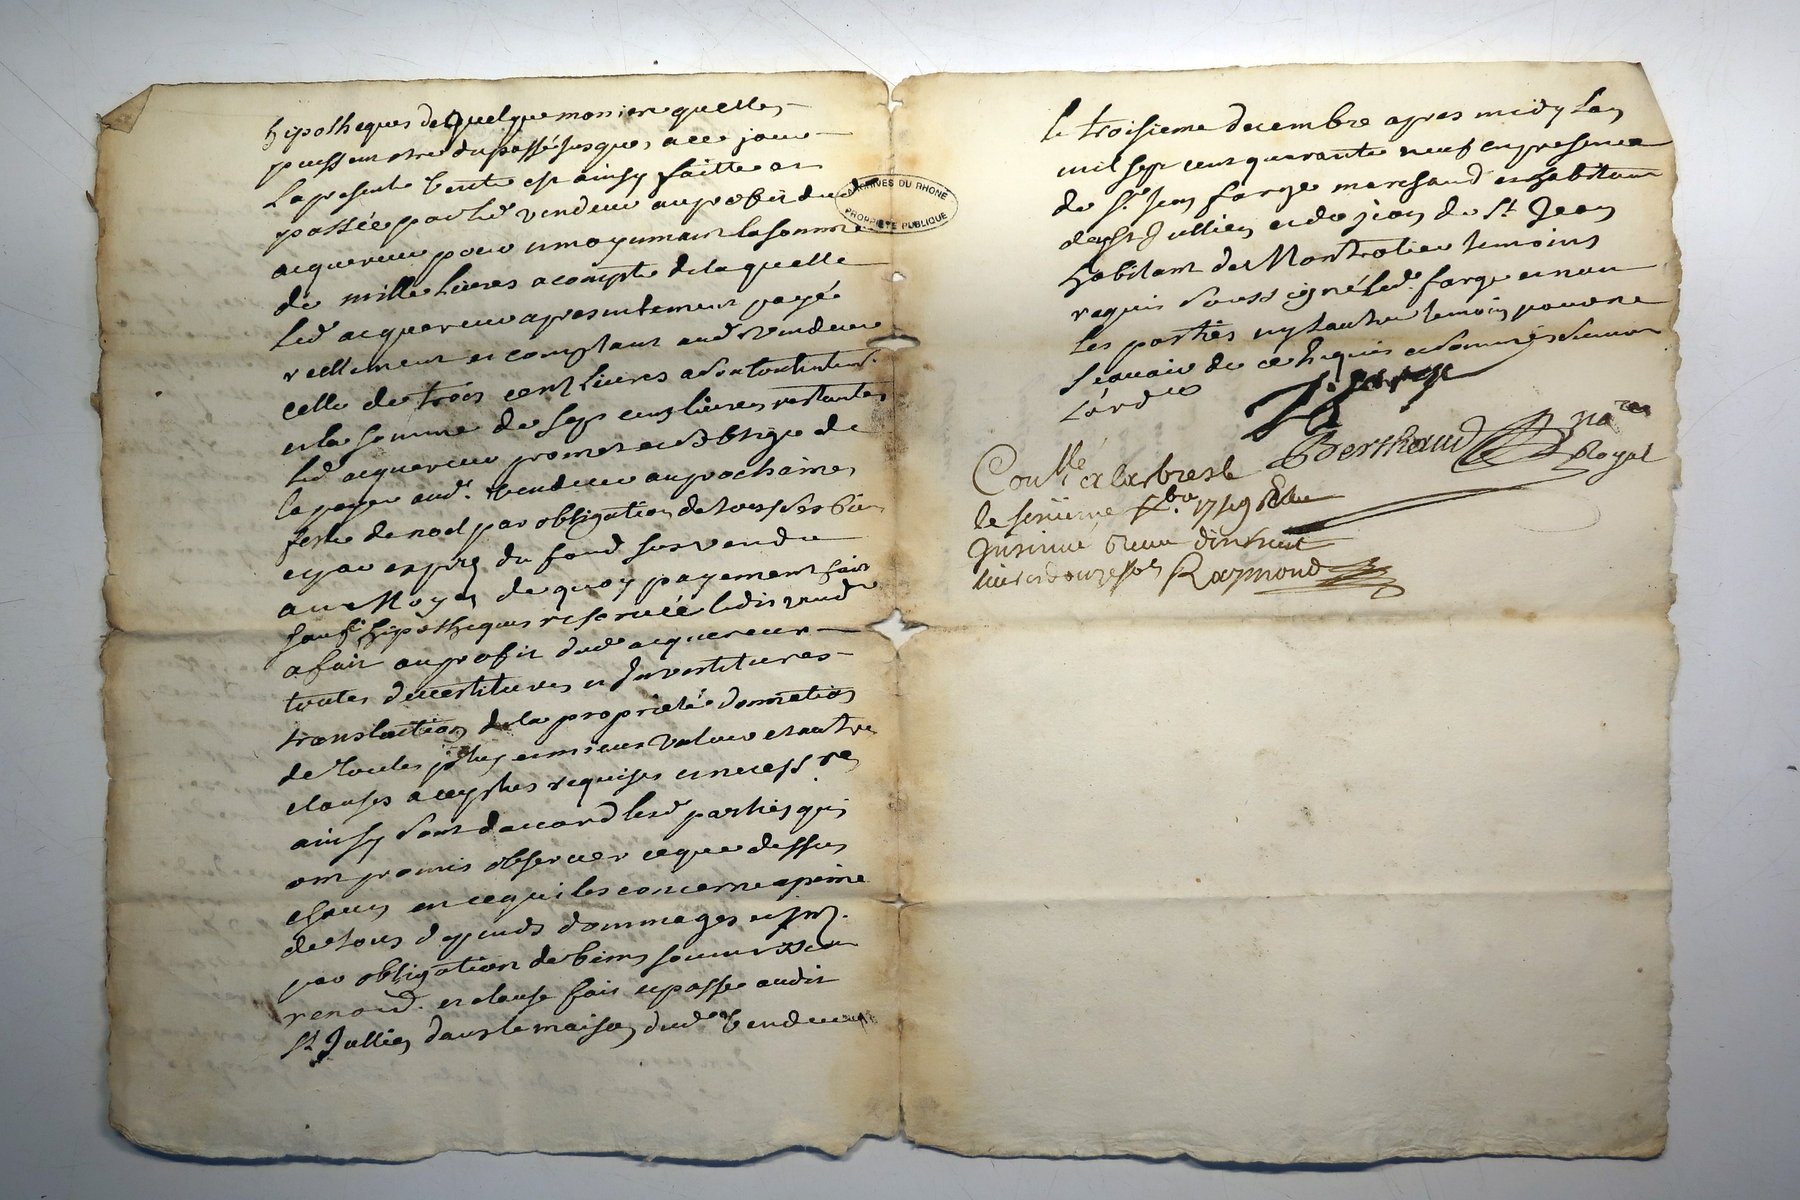 hipotheques de quelque maniere quelles
puissent etre du passé jusques a ce jour
La presente vente est ainsy faitte et
passée par led vendeur au profit dud
acquereur pour et moyenant la somme
de mille livres a compte de laquelle
led acquereur a presentement payé
reellement et comptant aud vendeur
celle de trois cent livres a son contentemt.
et la somme de sept cens livres restantes
led acquereur promet et soblige de
la payer aud. vendeur au prochaines
feste de noel par obligation de tous ses biens
et par exprez du fond susvendu
au moyen de quoy payement fait
sauf hipotheques reservée ledit vendr
a fait au profit dud acquereur
toutes devestitures et Investitures
translation de la proprieté donnation
de toutes plus et mieux value et autres
clauses a ce plus requises et necessres
ainsy sont daccord lesd parties qui
ont promis observer ce que dessus
chacun en ce qui les concerne a peine
de tous depends dommages et
par obligation de biens soumission
renond. et clause fait et passé audit
St Jullien dans le maison dud vendeur
ARCHIVES DU RHONE
PROPRIETE PUBLIQUE
le troisieme decembre apres midy lan
mil sept cent quarante neuf en presence
de sr. Jean farge marchand et habitant
dud St Jullien et de jean de St Jean
habitant de Montrotier temoins
requis soussigné led. farge et non
les parties ny lautre temoin pour ne
scavoir de ce enquis et sommés suivant
Lordre
J: farge
Berthaud nore
Royal
Conllé a larbresle
le sixieme xbre 1749
Insinué Receu dix huit
livres douze sols Raymond